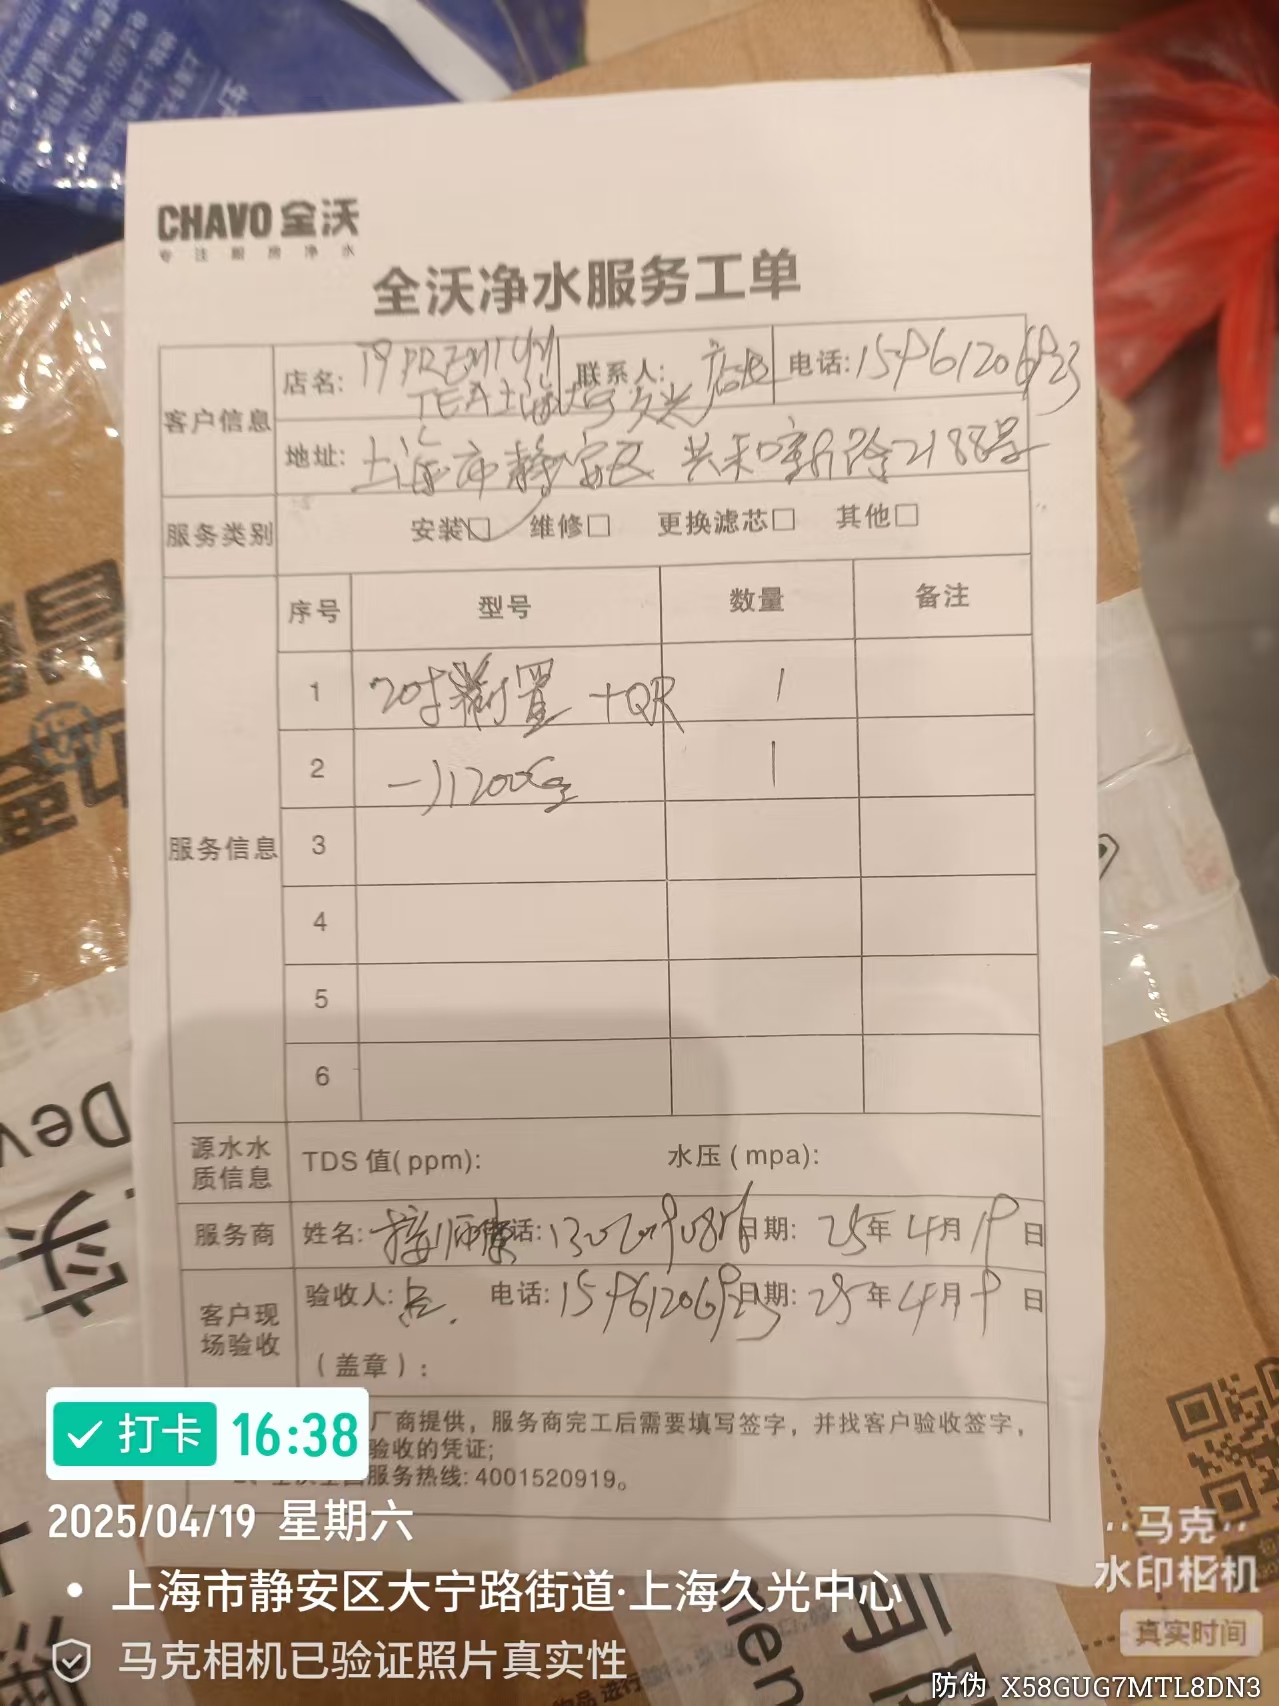 CHAVO 全沃
专注厨房净水
全沃净水服务工单
客户信息
店名: T9 PREMIUM TEA上海大宁久光
联系人: 店长
电话: 15961206923
地址: 上海市静安区共和新路2188号
服务类别
安装 维修 更换滤芯 其他
服务信息
序号 型号 数量 备注
1 20寸 前置 +QR 1
2 1200G 1
3
4
5
6
源水水质信息
TDS 值(ppm): 水压(mpa):
服务商
姓名: 师 电话: 日期: 25年4月19日
客户现场验收
验收人: 电话: 15961206923 日期: 25年4月19日
(盖章):
厂商提供，服务商完工后需要填写签字，并找客户验收签字，
验收的凭证;
服务热线: 4001520919。
打卡 16:38
2025/04/19 星期六
上海市静安区大宁路街道·上海久光中心
马克相机已验证照片真实性
马克
水印相机
真实时间
防伪 X58GUG7MTL8DN3